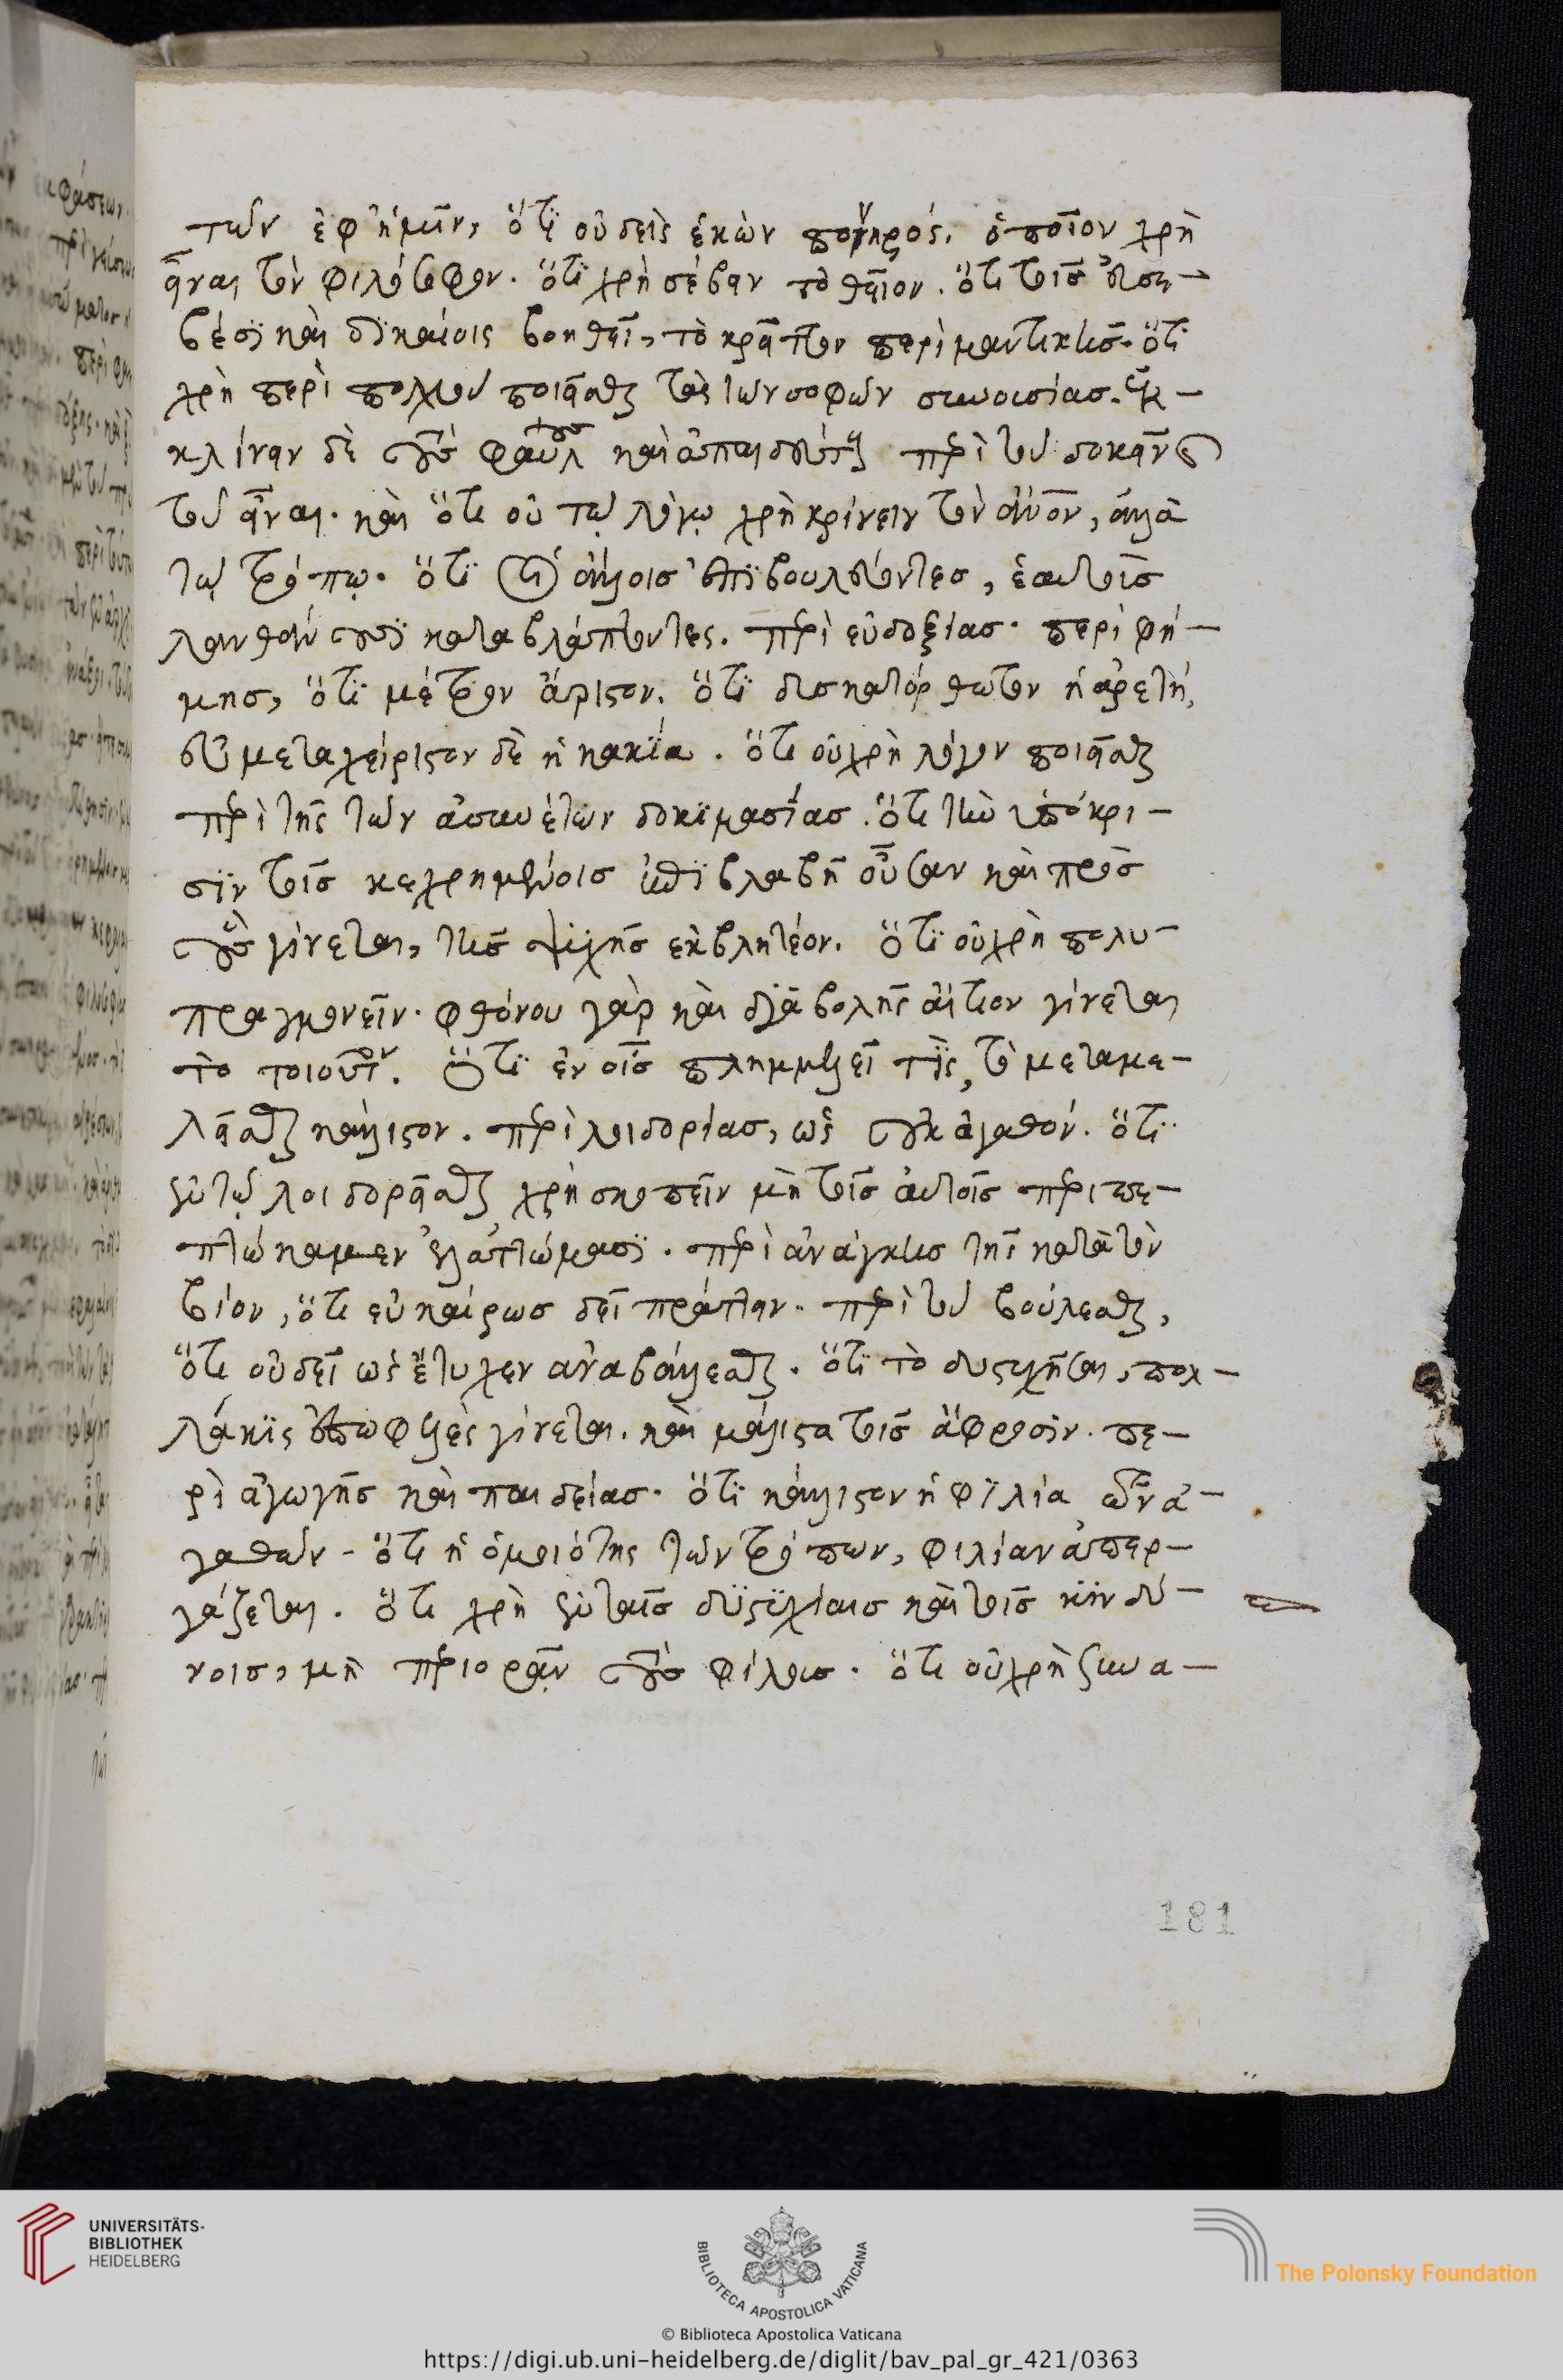 των ἐφ' ἡμῖν, ὅτι οὐδεὶς ἑκὼν πονηρός. ὁποῖον χρὴ
εἶναι τὸν φιλόσοφον. ὅτι χρὴ σέβειν τὸ θεῖον. ὅτι τοῖς εὐσε-
βέσϊ καὶ δϊκαίοις βοηθεῖ, τὸ κρεῖττον περὶ μαντικῆς. ὅτι
χρὴ περὶ πολλοῦ ποιεῖσθαι τὰς τῶν σοφῶν συνουσίας. ἐκ-
κλίνειν δὲ τοὺς φαύλους καὶ ἀπαιδεύτους περὶ τοῦ δοκεῖν καὶ
τοῦ εἶναι. καὶ ὅτι οὐ τῷ λόγῳ χρὴ κρίνειν τὸν ἄνθρωπον, ἀλλὰ
τῷ τρόπῳ. ὅτϊ τοῖς ἄλλοις ἐπϊβουλεύοντες, ἑαυτοὺς
λανθάνουσϊ καταβλάπτοντες. περὶ εὐδοξίας. περὶ φή-
μης, ὅτϊ μέτρον ἄριστον. ὅτϊ δυσκατόρθωτον ἡ ἀρετή,
εὐμεταχείριστον δὲ ἡ κακϊα. ὅτι οὐ χρὴ λόγον ποιεῖσθαι
περὶ τῆς τῶν ἀσυνέτων δοκϊμασίας. ὅτι τὴν ὑπόκρι-
σϊν τοῖς κεχρημένοις ἐπϊβλαβῆ οὖσαν καὶ πρὸς
οὓς γίνεται, τῆς ψυχῆς ἐκβλητέον. ὅτϊ οὐ χρὴ πολυ-
πραγμονεῖν. φθόνου γὰρ καὶ διαβολῆς αἴτιον γίνεται
τὸ τοιοῦτον. ὅτϊ ἐν οἷς πλημμελεῖ τϊς, τὸ μεταμε-
λεῖσθαι κάλλιστον. περὶ λοιδορίας, ὡς οὐκ ἀγαθόν. ὅτϊ
ἐν τῷ λοιδορεῖσθαι χρὴ σκοπεῖν μὴ τοῖς αὐτοῖς περιπε-
πτώκαμεν ἐλαττώμασϊ. περὶ ἀνάγκης τῆς κατὰ τὸν
βίον, ὅτι εὐκαίρως δεῖ πράττειν. περὶ τοῦ βούλεσθαι,
ὅτι οὐ δεῖ ὡς ἔτυχεν ἀναβάλλεσθαι. ὅτϊ τὸ δυστυχῆσαι, πολ-
λάκϊς ἐπωφελὲς γίνεται. καὶ μάλιστα τοῖς ἄφροσϊν. πε-
ρὶ ἀγωγῆς καὶ παιδείας. ὅτϊ κάλλιστον ἡ φϊλία τῶν ἀ-
γαθῶν. ὅτι ἡ ὁμοιότης τῶν τρόπων, φιλίαν ἀπερ-
γάζεται. ὅτι χρὴ ἐν ταῖς δυστυχίαις καὶ τοῖς κϊνδύ-
νοις, μὴ περιορᾶν τοὺς φίλους. ὅτι οὐ χρὴ ζῶνα-
181
UNIVERSITÄTS-
BIBLIOTHEK
HEIDELBERG
BIBLIOTECA APOSTOLICA VATICANA
The Polonsky Foundation
© Biblioteca Apostolica Vaticana
https://digi.ub.uni-heidelberg.de/diglit/bav_pal_gr_421/0363